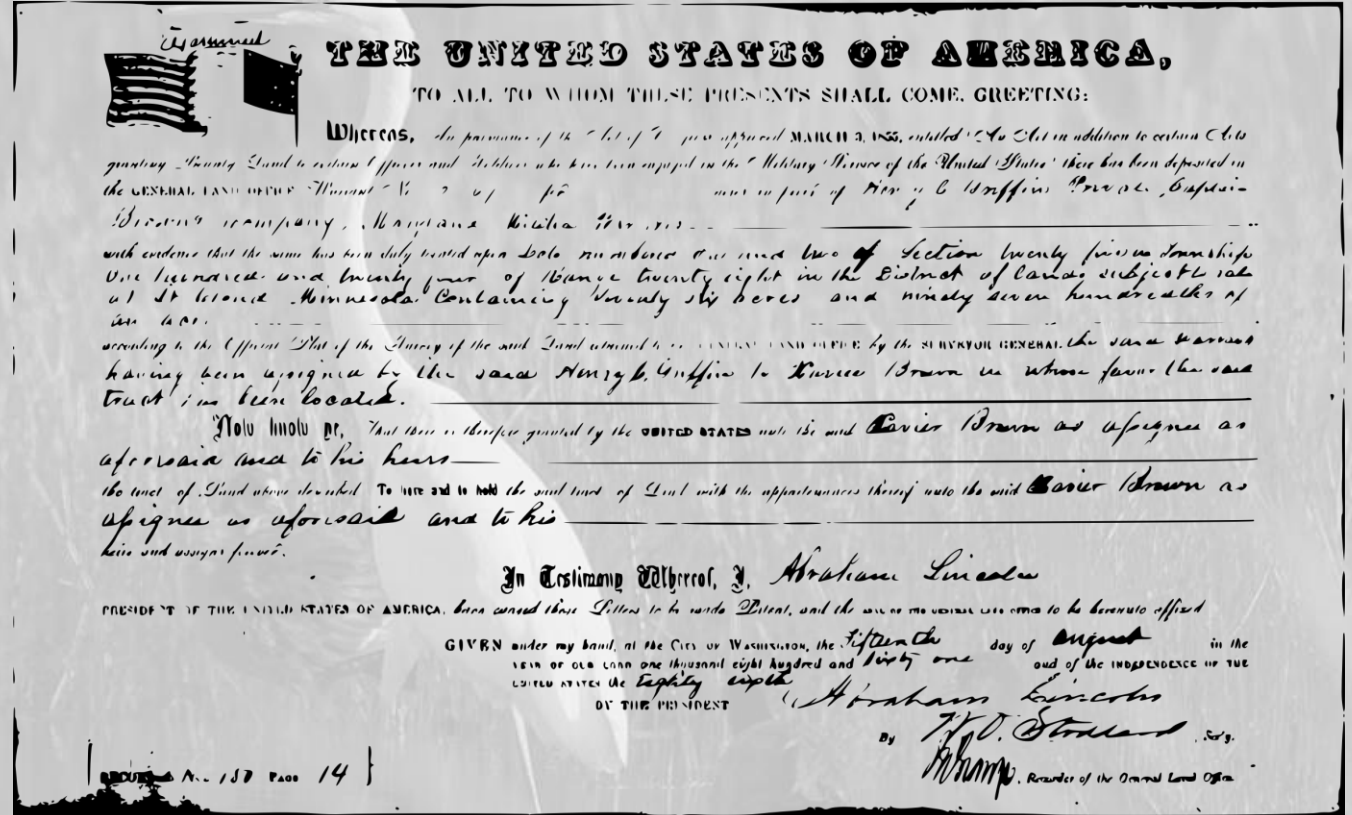 THE UNITED STATES OF AMERICA,
TO ALL TO WHOM THESE PRESENTS SHALL COME, GREETING:
Whereas, In pursuance of the Act of approved MARCH 3, 1855, entitled "An Act in addition to certain Acts
granting Bounty Land to certain Officers and Soldiers who have been engaged in the Military Service of the United States" there has been deposited in
the GENERAL LAND OFFICE Warrant No in favor of Henry C Griffin Private Captain
Brown's company, Maryland Militia
with evidence that the same has been duly located upon Lots numbered one and two of Section twenty in Township
One hundred and twenty four of Range twenty eight in the District of lands subject to sale
at St Cloud Minnesota Containing Seventy six acres and ninety seven hundredths of
an acre.
according to the Official Plat of the Survey of the said Land returned to the GENERAL LAND OFFICE by the SURVEYOR GENERAL the said warrant
having been assigned by the said Henry C. Griffin to Xavier Brown in whose favor the said
tract has been located.
Now know ye, That there is therefore granted by the UNITED STATES unto the said Xavier Brown as assignee as
aforesaid and to his heirs
the tract of Land above described To have and to hold the said tract of Land with the appurtenances thereof unto the said Xavier Brown as
assignee as aforesaid and to his
heirs and assigns forever.
In Testimony Whereof, I, Abraham Lincoln
PRESIDENT OF THE UNITED STATES OF AMERICA, have caused these Letters to be made Patent, and the SEAL OF THE GENERAL LAND OFFICE to be hereunto affixed
GIVEN under my hand, at the CITY OF WASHINGTON, the Fifteenth day of August in the
YEAR OF OUR LORD one thousand eight hundred and sixty one and of the INDEPENDENCE OF THE
UNITED STATES the Eighty sixth
BY THE PRESIDENT Abraham Lincoln
By W. O. Stoddard, Sec'y.
Recorder of the General Land Office
No. 150 PAGE 14